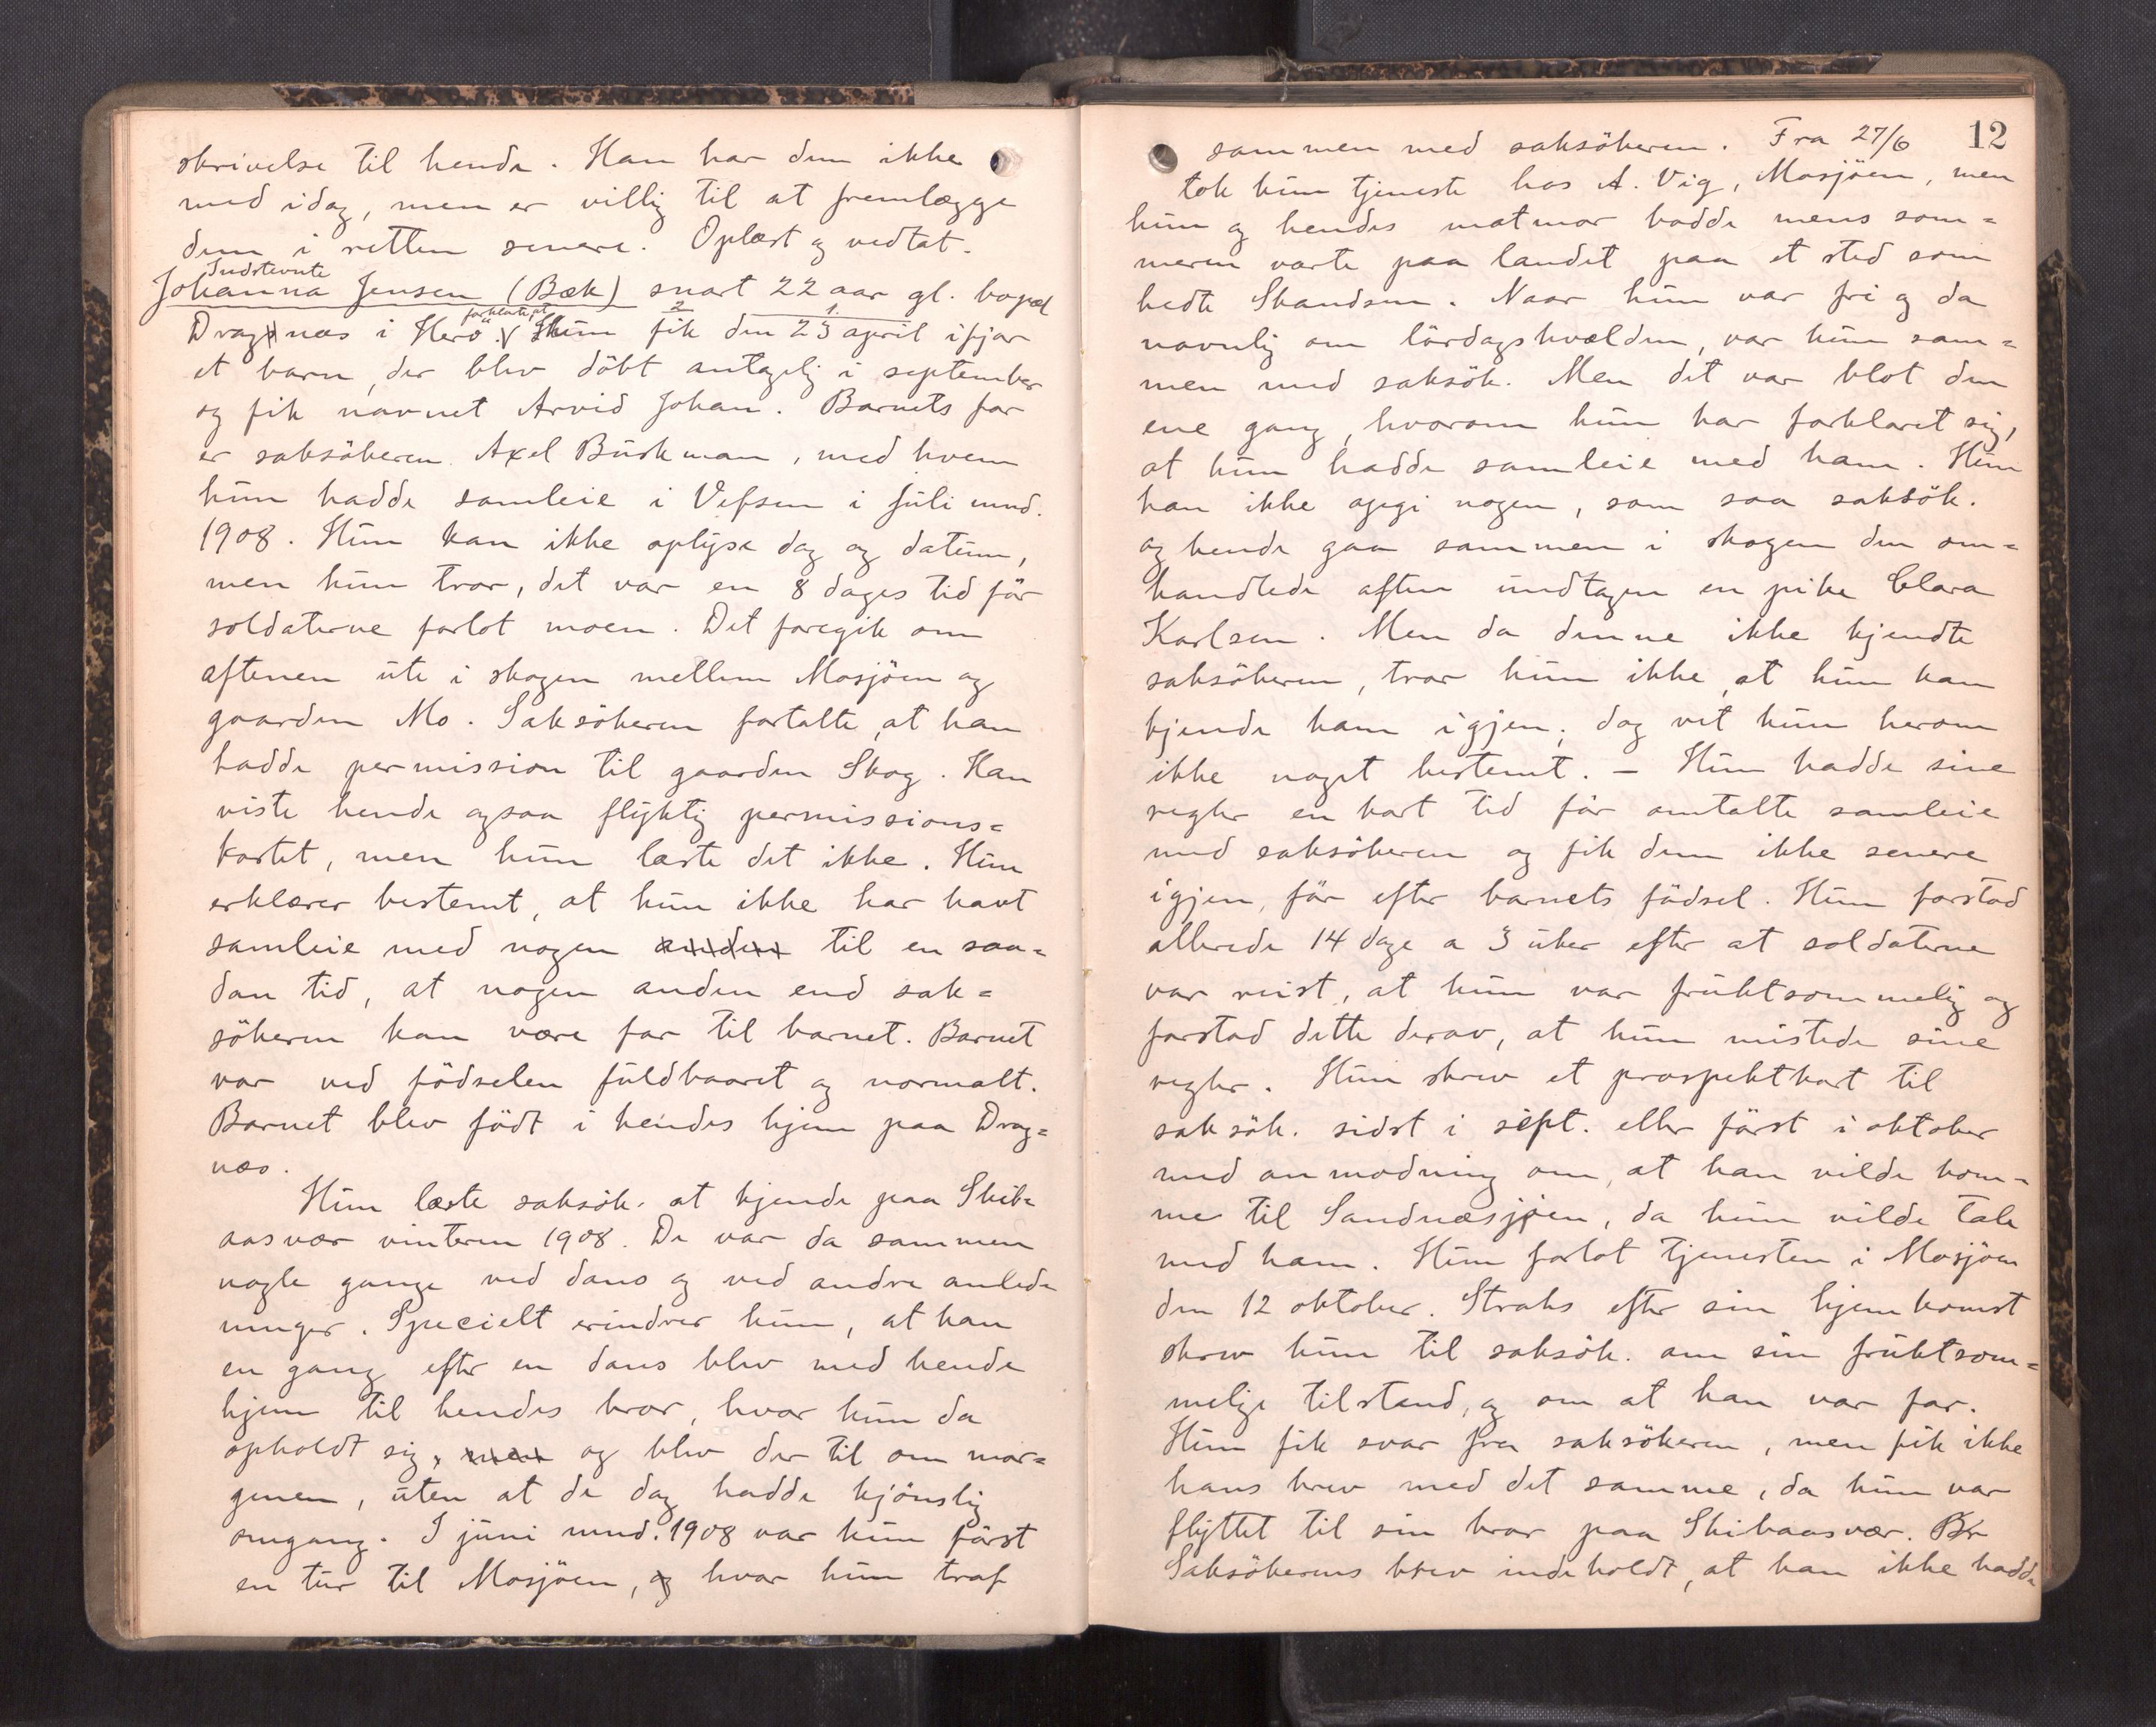 skrivelse til hende. Han har den ikke
med idag, men er villig til at fremlægge
den i retten senere. Oplæst og vedtat.
Indstevnte
Johanna Jensen (Bæk) snart 22 aar gl. bopæl
Dragsnæs i Herö. forklarte, at Hun fik den 23 april ifjor
et barn, der blev döbt antagelig i september
og fik navnet Arvid Johan. Barnets far
er saksökeren Axel Burkman, med hvem
hun hadde samleie i Vefsen i juli mnd.
1908. Hun kan ikke oplyse dag og datum,
men hun tror, det var en 8 dages tid för
soldaterne forlot moen. Det foregik om
aftenen ute i skogen mellem Mosjöen og
gaarden Mo. Saksökeren fortalte, at han
hadde permission til gaarden Skog. Han
viste hende ogsaa flyktig permissions=
kortet, men hun læste det ikke. Hun
erklærer bestemt, at hun ikke har havt
samleie med nogen anden til en saa=
dan tid, at nogen anden end sak=
sökeren kan være far til barnet. Barnet
var ved födselen fuldbaaret og normalt.
Barnet blev födt i hendes hjem paa Drag=
næs.
Hun lærte saksök. at kjende paa Skib=
aasvær vinteren 1908. De var da sammen
nogle gange ved dans og ved andre anled=
ninger. Specielt erindrer hun, at han
en gang efter en dans blev med hende
hjem til hendes bror, hvor hun da
opholdt sig, men og blev der til om mor=
genen, uten at de dog hadde kjönslig
omgang. I juni mnd. 1908 var hun först
en tur til Mosjöen, og hvor hun traf
12
sammen med saksökeren. Fra 27/6
tok hun tjeneste hos A. Vig, Mosjöen, men
hun og hendes matmor bodde mens som=
meren varte paa landet paa et sted som
hedte Skandsen. Naar hun var fri og da
navnlig om lördagskvælden, var hun sam=
men med saksök. Men det var blot den
ene gang, hvorom hun har forklaret sig,
at hun hadde samleie med ham. Hun
kan ikke opgi nogen, som saa saksök.
og hende gaa sammen i skogen den om=
handlede aften undtagen en pike Clara
Karlsen. Men da denne ikke kjendte
saksökeren, tror hun ikke, at hun kan
kjende ham igjen; dog vet hun herom
ikke noget bestemt. – Hun hadde sine
regler en kort tid för omtalte samleie
med saksökeren og fik dem ikke senere
igjen, för efter barnets födsel. Hun forstod
allerede 14 dage a 3 uker efter at soldaterne
var reist, at hun var fruktsommelig og
forstod dette derav, at hun mistede sine
regler. Hun skrev et prospektkort til
saksök. sidst i sept. eller först i oktober
med anmodning om, at han vilde kom=
me til Sandnæsjöen, da hun vilde tale
med ham. Hun forlot tjenesten i Mosjöen
den 12 oktober. Straks efter sin hjemkomst
skrev hun til saksök. om sin fruktsom=
melige tilstand, og om at han var far.
Hun fik svar fra saksökeren, men fik ikke
hans brev med det samme, da hun var
flyttet til sin bror paa Skibaasvær. Br
Saksökerens brev indeholdt, at han ikke hadde